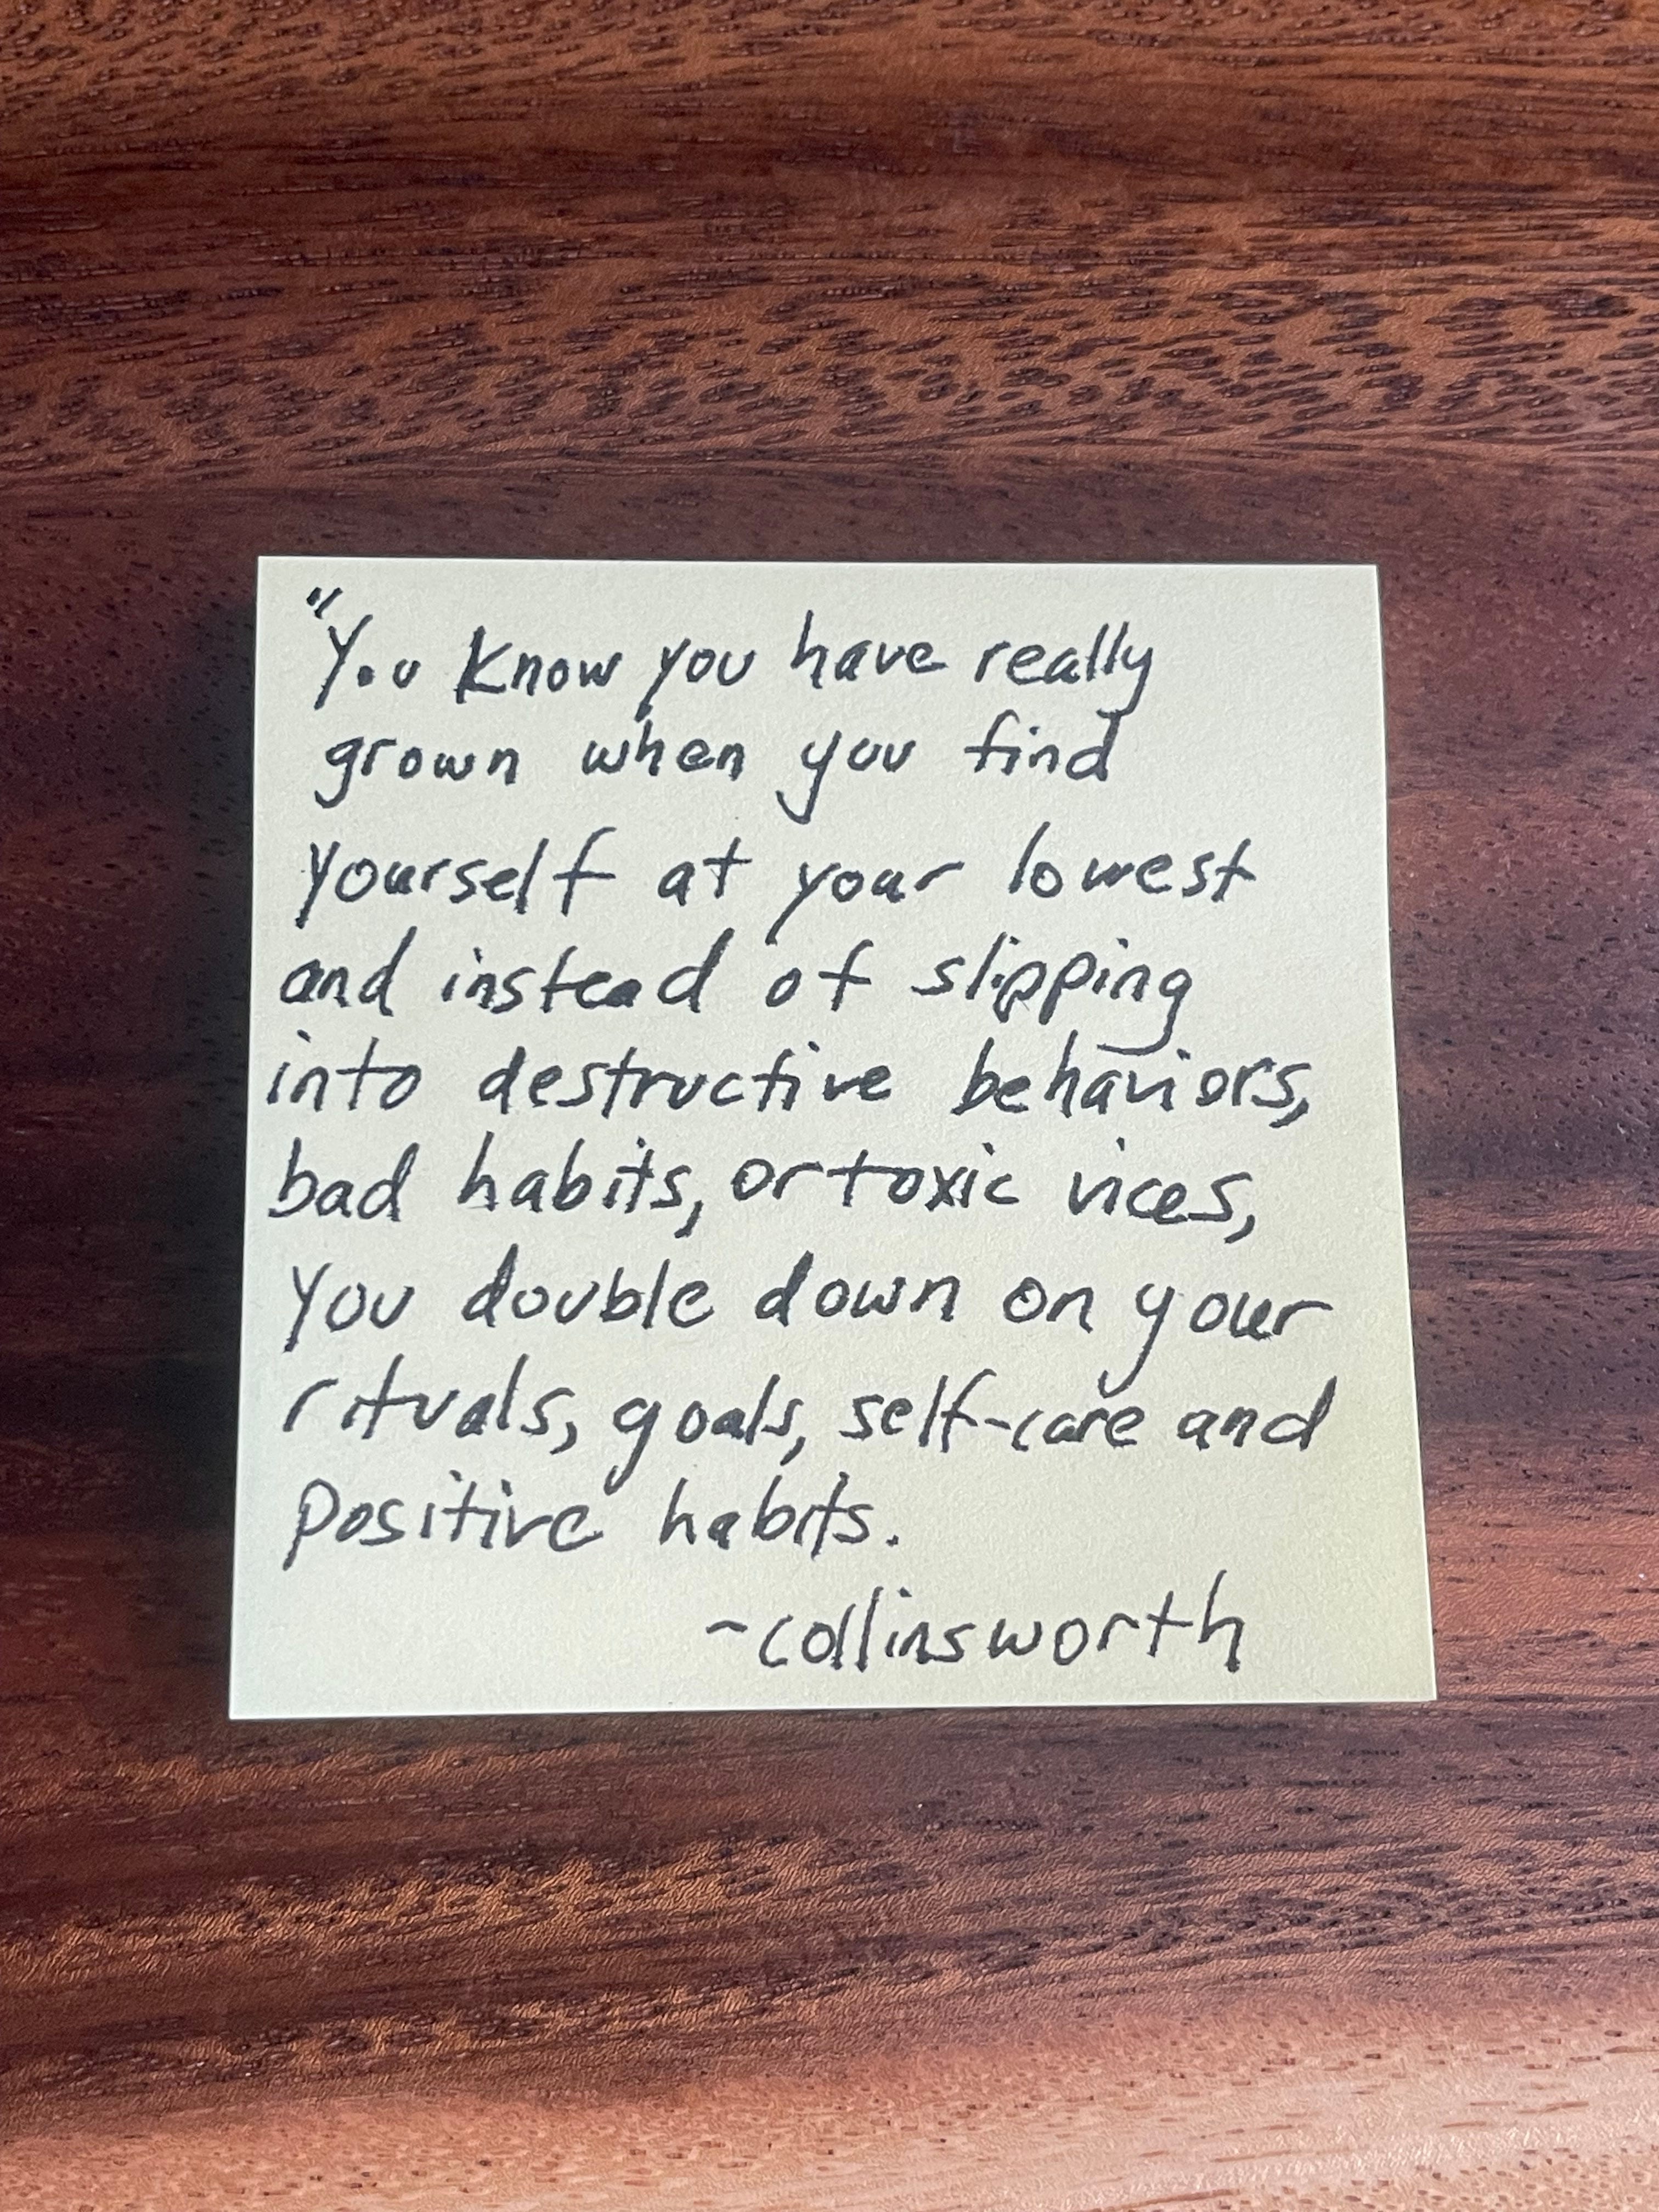 "You know you have really
grown when you find
yourself at your lowest
and instead of slipping
into destructive behaviors,
bad habits, or toxic vices,
you double down on your
rituals, goals, self-care and
positive habits.
~collinsworth